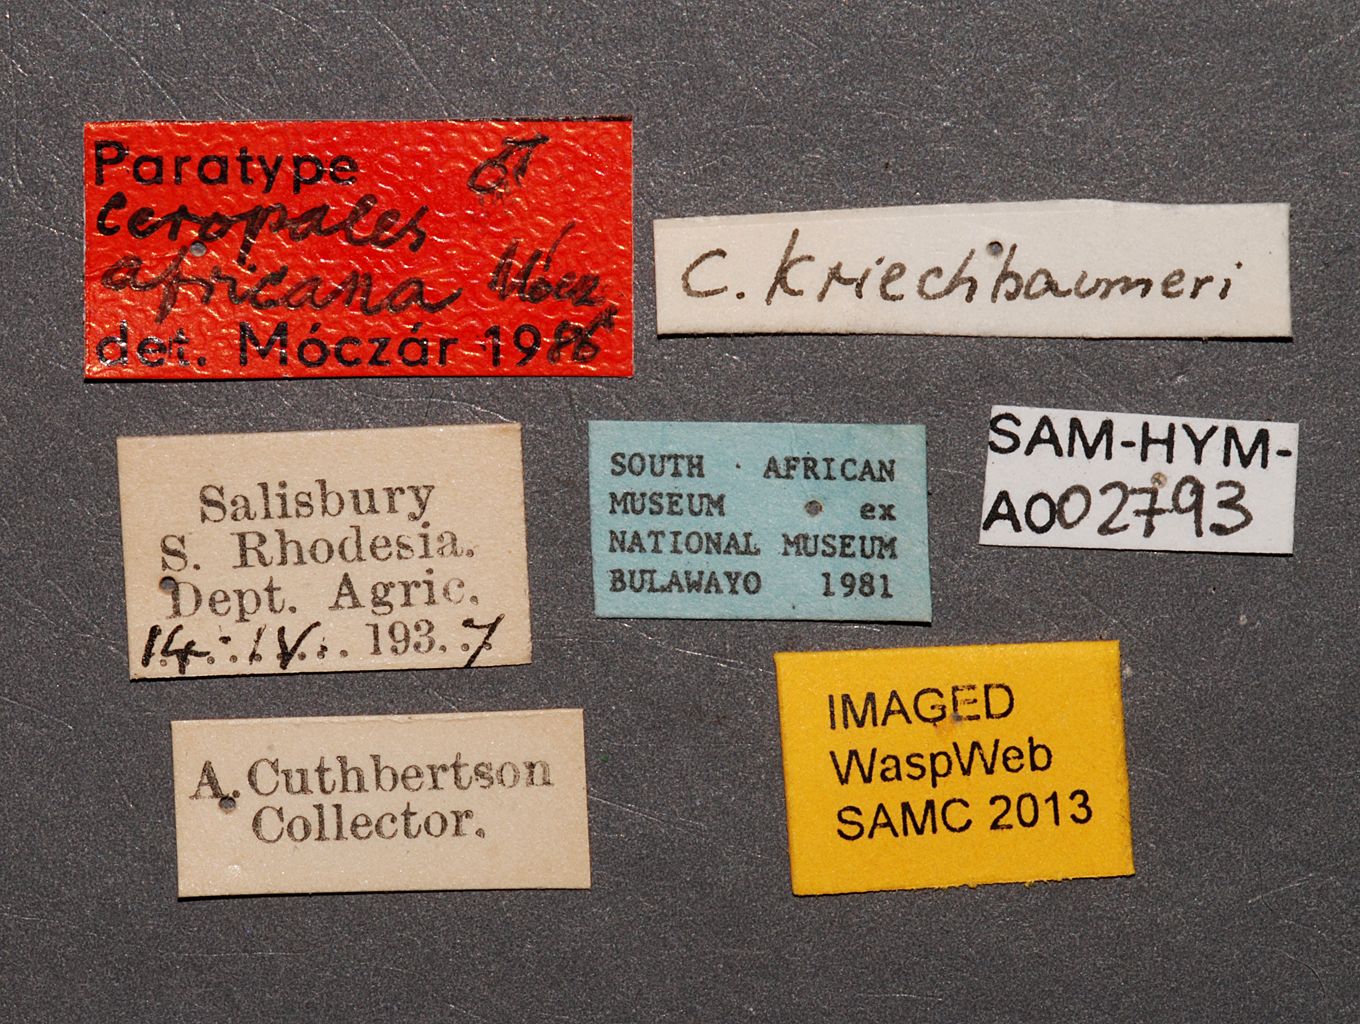 Paratype ♂
Ceropales
africana Mócz.
det. Móczár 1986
C. Kriechbaumeri
Salisbury
S. Rhodesia.
Dept. Agric.
14. IV. 193.7
SOUTH AFRICAN
MUSEUM ex
NATIONAL MUSEUM
BULAWAYO 1981
SAM-HYM-
A002793
A. Cuthbertson
Collector.
IMAGED
WaspWeb
SAMC 2013